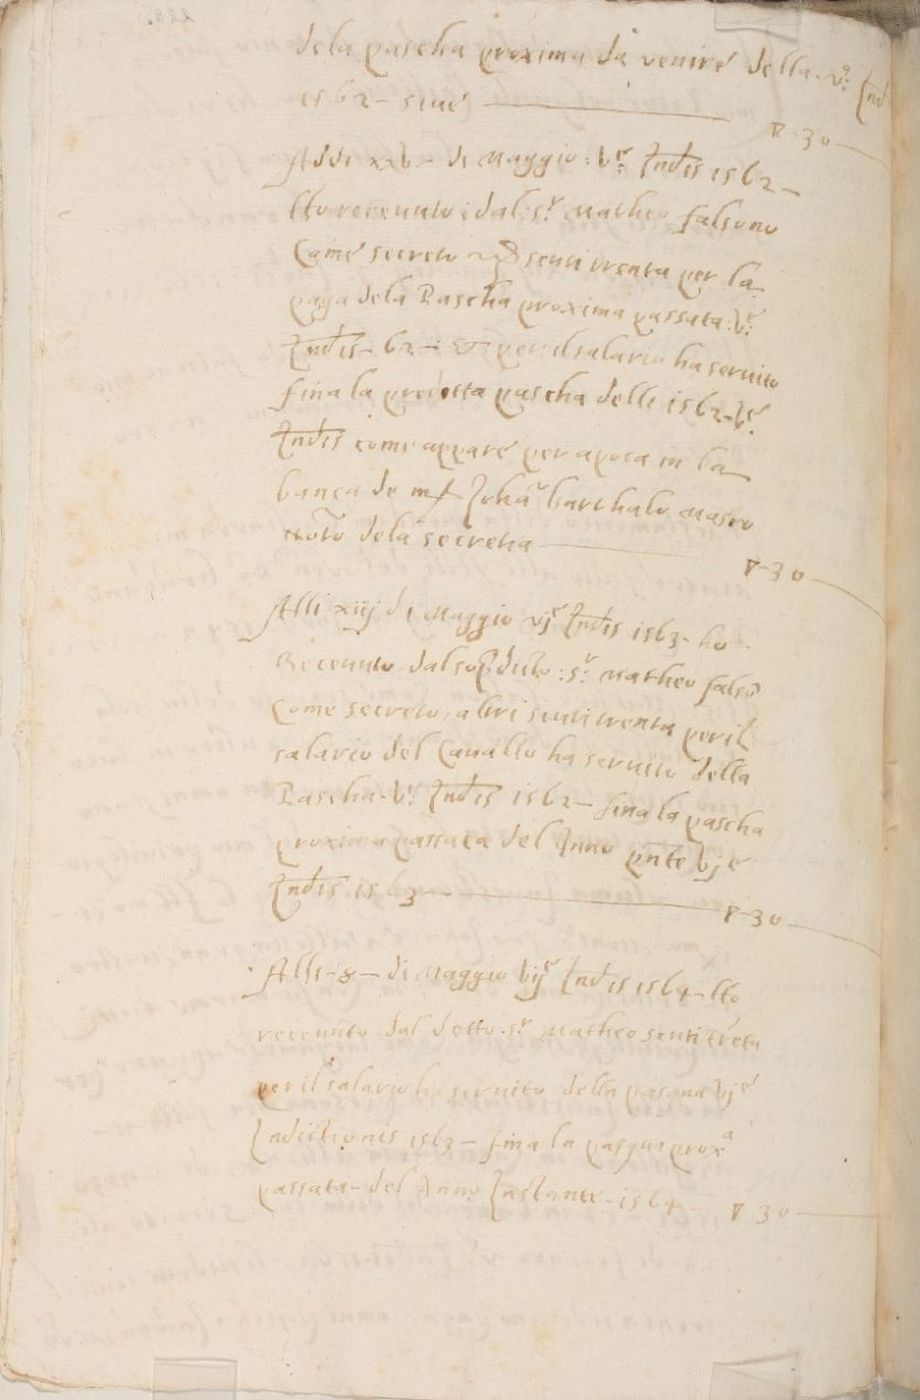 dela pascha proxima da venire della .v.ª Ind
1562 – siue ——— ▽ 30 –
Addi xxv – di Maggio : v.ᵉ Indis 1562 –
Ho receuuto : dal s.ʳ Matheo falsono
Come secreto scuti trenta per la
paga dela Pascha proxima passata : v.ᵉ
Indis – 62 – : & per il salario ha seruito
fina la preditta pascha delli 1562 – v.ᵉ
Indis come appare per apoca in la
banca de mʳ Johãˢ barthalo Macro
noto dela secretia ——— ▽ 30 –
Alli xiij di Maggio vjᵉ Indis 1563 – ho
Receuuto dal sopᵈdicto : s.ʳ Matheo falsõ
Come secreto, altri scuti trenta per il
salario del Cauallo ha seruito della
Pascha – v.ᵉ Indis 1562 – fina la pascha
proxima passata del Anno pñte vjᵉ
Indis 1563 ——— ▽ 30 –
Alli – 8 – di Maggio vijᵉ Indis 1564 – Ho
receuuto dal detto s.ʳ Matheo scuti trẽta
per il salario ha seruito della pasqua vjᵉ
Indictionis 1563 – fina la pasqua proxª
passata – del Anno Instante – 1564 – ▽ 30 –